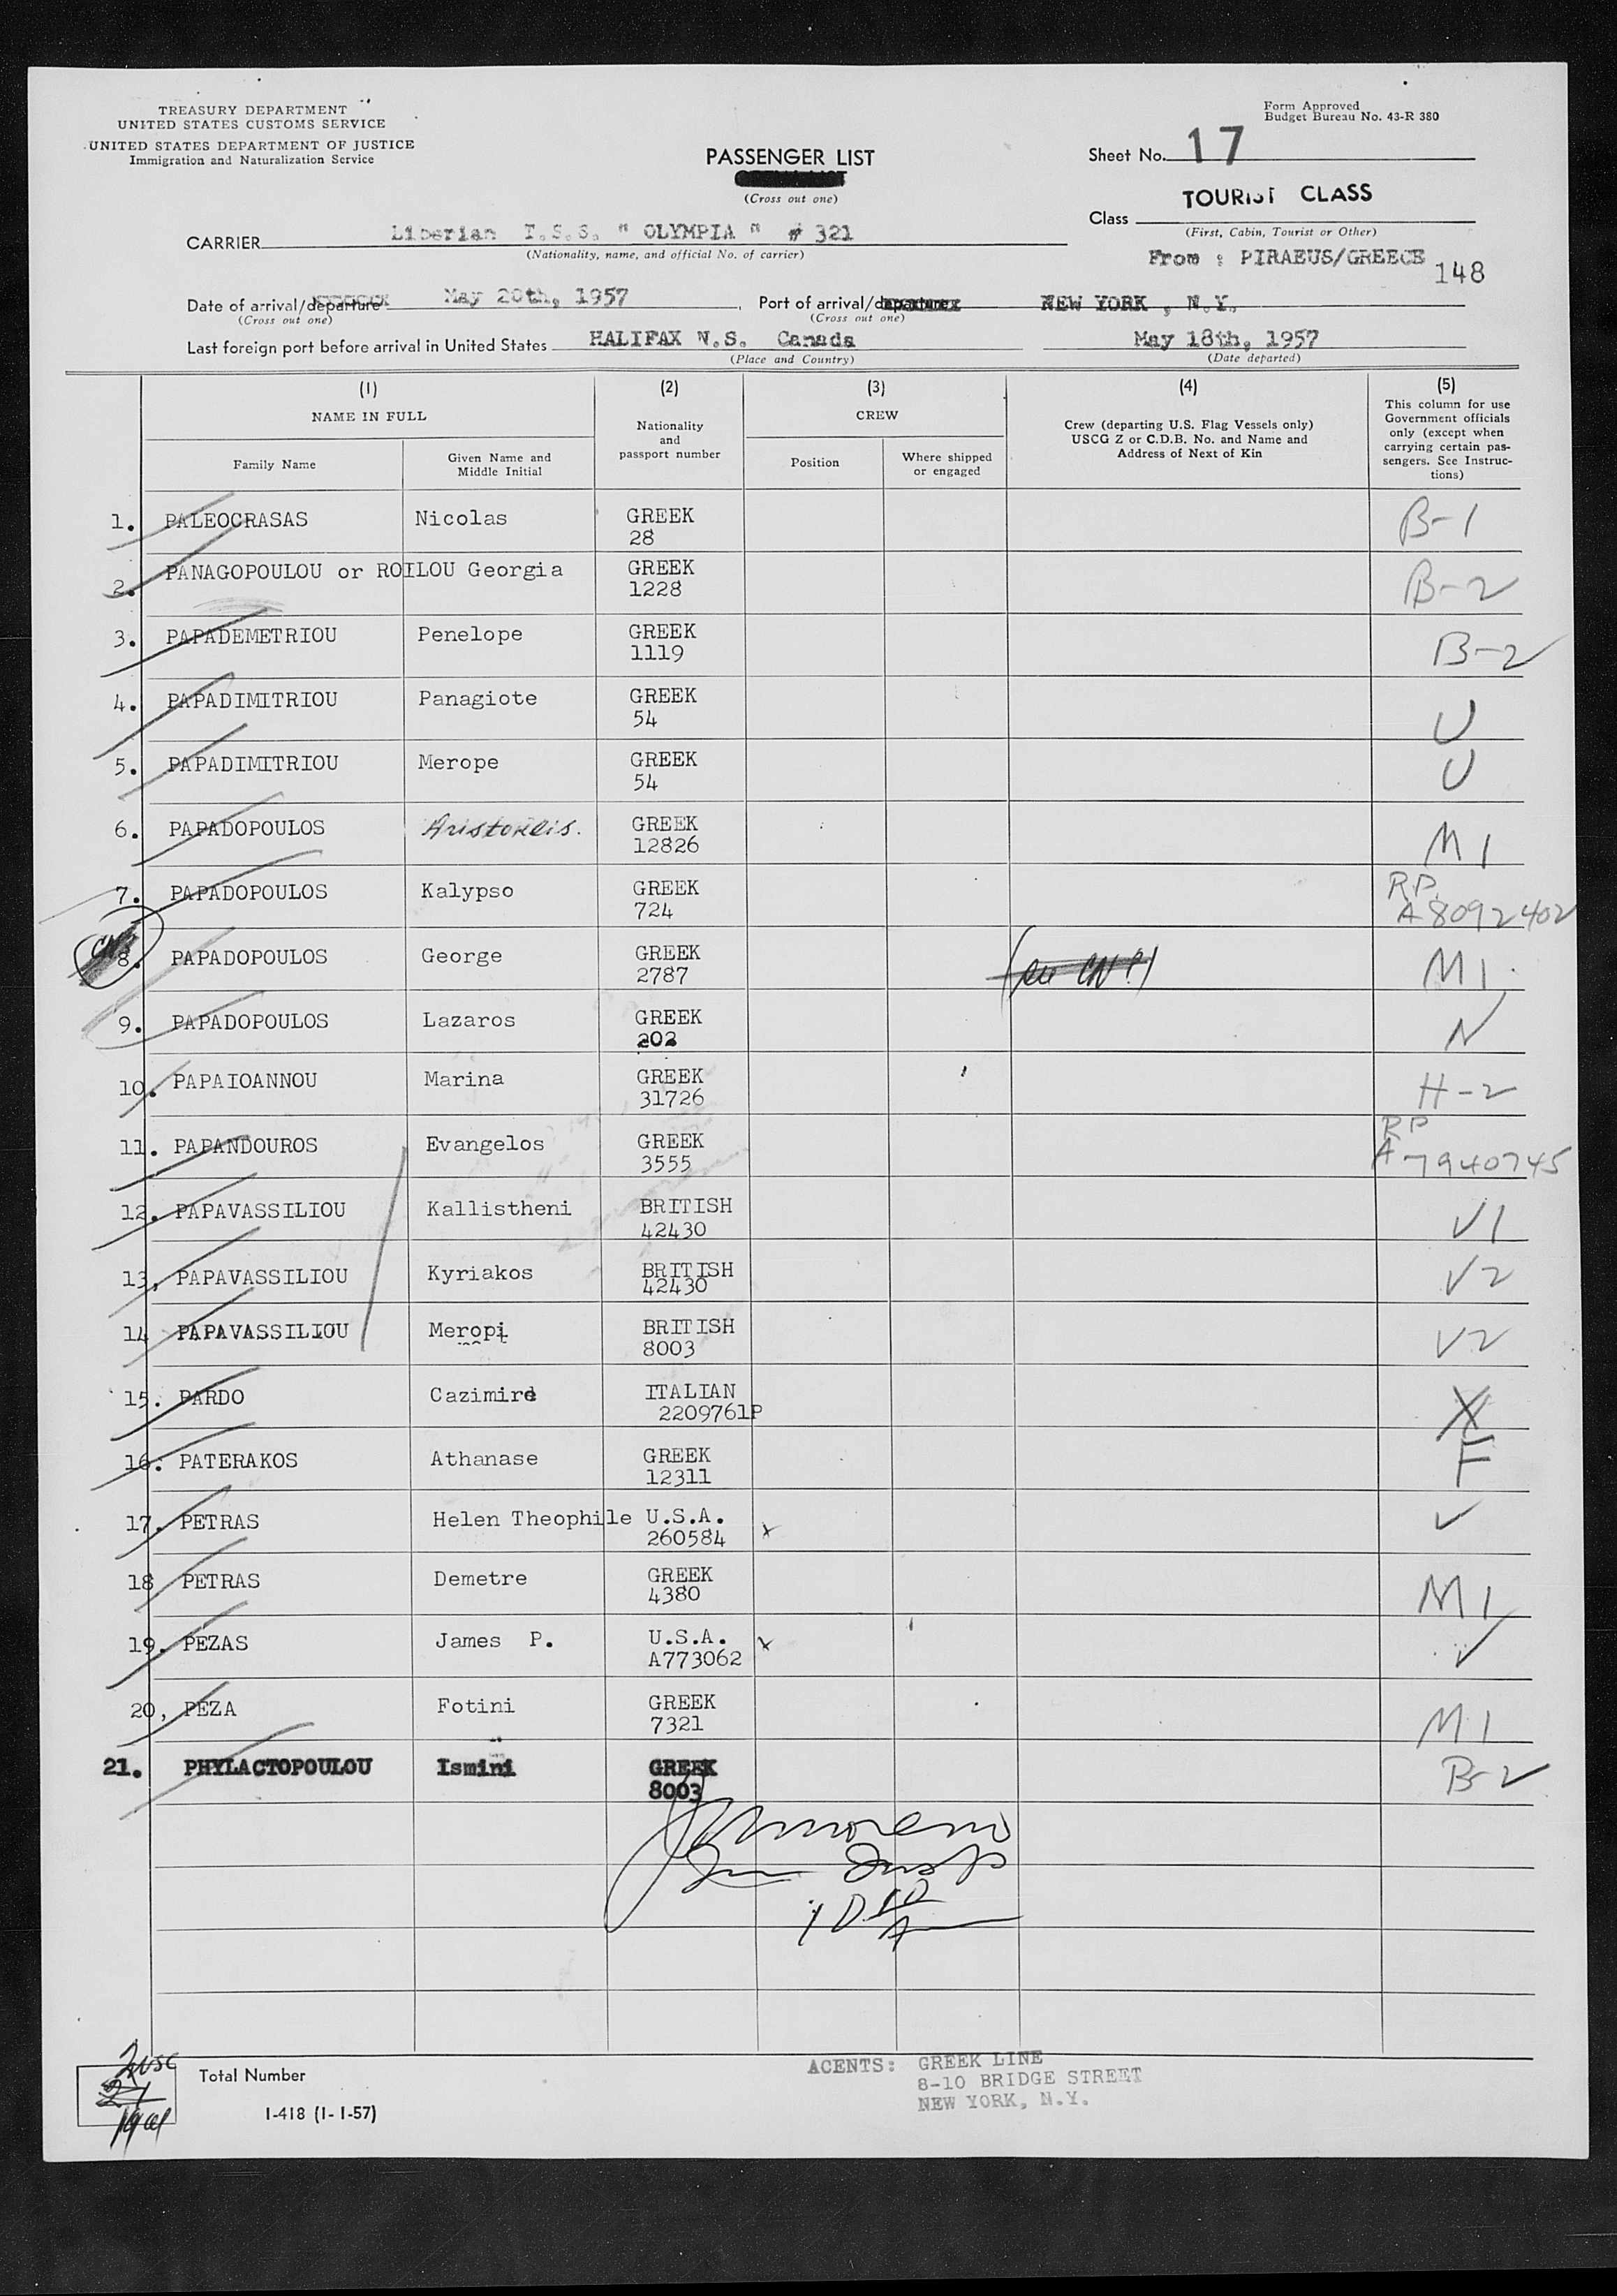 TREASURY DEPARTMENT
UNITED STATES CUSTOMS SERVICE
UNITED STATES DEPARTMENT OF JUSTICE
Immigration and Naturalization Service
Form Approved
Budget Bureau No. 43-R 380
PASSENGER LIST
(Cross out one)
Sheet No. 17
Class TOURIST CLASS
(First, Cabin, Tourist or Other)
CARRIER Liberian T.S.S. " OLYMPIA " # 321
(Nationality, name, and official No. of carrier)
From : PIRAEUS/GREECE 148
Date of arrival/departure May 20th, 1957 Port of arrival/departure NEW YORK , N.Y.
(Cross out one) (Cross out one)
Last foreign port before arrival in United States HALIFAX N.S. Canada May 18th, 1957
(Place and Country) (Date departed)
(1) (2) (3) (4) (5)
NAME IN FULL
Family Name
Given Name and Middle Initial
Nationality and passport number
CREW
Position
Where shipped or engaged
Crew (departing U.S. Flag Vessels only)
USCG Z or C.D.B. No. and Name and
Address of Next of Kin
This column for use
Government officials
only (except when
carrying certain pas-
sengers. See Instruc-
tions)
1. PALEOCRASAS Nicolas GREEK B-1
28
2. PANAGOPOULOU or ROILOU Georgia GREEK B-2
1228
3. PAPADEMETRIOU Penelope GREEK B-2
1119
4. PAPADIMITRIOU Panagiote GREEK U
54
5. PAPADIMITRIOU Merope GREEK U
54
6. PAPADOPOULOS GREEK M1
12826
7. PAPADOPOULOS Kalypso GREEK RP
724 A8092402
8. PAPADOPOULOS George GREEK M1
2787
9. PAPADOPOULOS Lazaros GREEK N
202
10. PAPAIOANNOU Marina GREEK H-2
31726
11. PAPANDOUROS Evangelos GREEK RP
3555 A-7940745
12. PAPAVASSILIOU Kallistheni BRITISH V1
42430
13, PAPAVASSILIOU Kyriakos BRITISH V2
42430
14 PAPAVASSILIOU Meropi BRITISH V2
8003
15. PARDO Cazimire ITALIAN X
2209761P
16. PATERAKOS Athanase GREEK F
12311
17. PETRAS Helen Theophile U.S.A. ✓
260584 x
18 PETRAS Demetre GREEK M1
4380
19. PEZAS James P. U.S.A. x ✓
A773062
20, PEZA Fotini GREEK M1
7321
21. PHYLACTOPOULOU Ismini GREEK B-2
8003
Total Number
I-418 (1-1-57)
AGENTS: GREEK LINE
8-10 BRIDGE STREET
NEW YORK, N.Y.